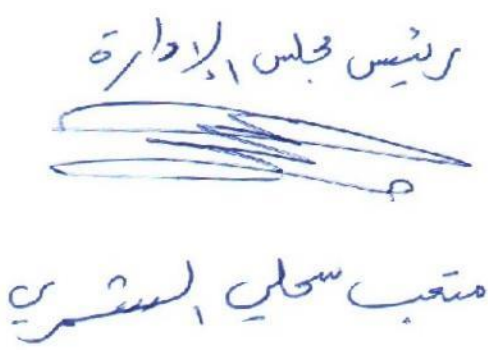 رئيس مجلس الإدارة
متعب سحلي الشمري